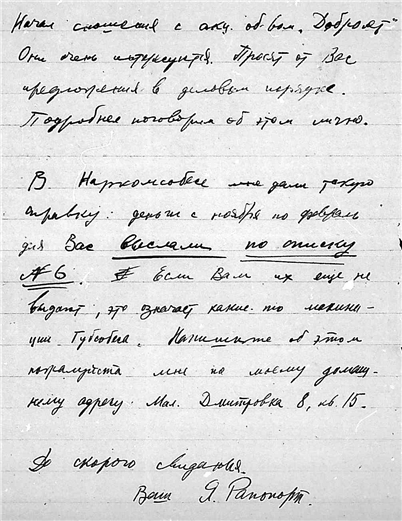 Начал сношения с акц. об-вом „Добролет"
Они очень интересуются. Просят от Вас
предложения в деловом порядке.
Подробнее поговорим об этом лично.
В Наркомсобесе мне дали такую
справку: деньги с ноября по февраль
для Вас выслали по списку
№ 6. Если Вам их еще не
выдают, это значает какие-то махина-
ции Губсобеса. Напишите об этом
пожалуйста мне по моему домаш-
нему адресу: Мал. Дмитровка 8, кв. 15.
До скорого свиданья.
Ваш Я. Рапопорт.